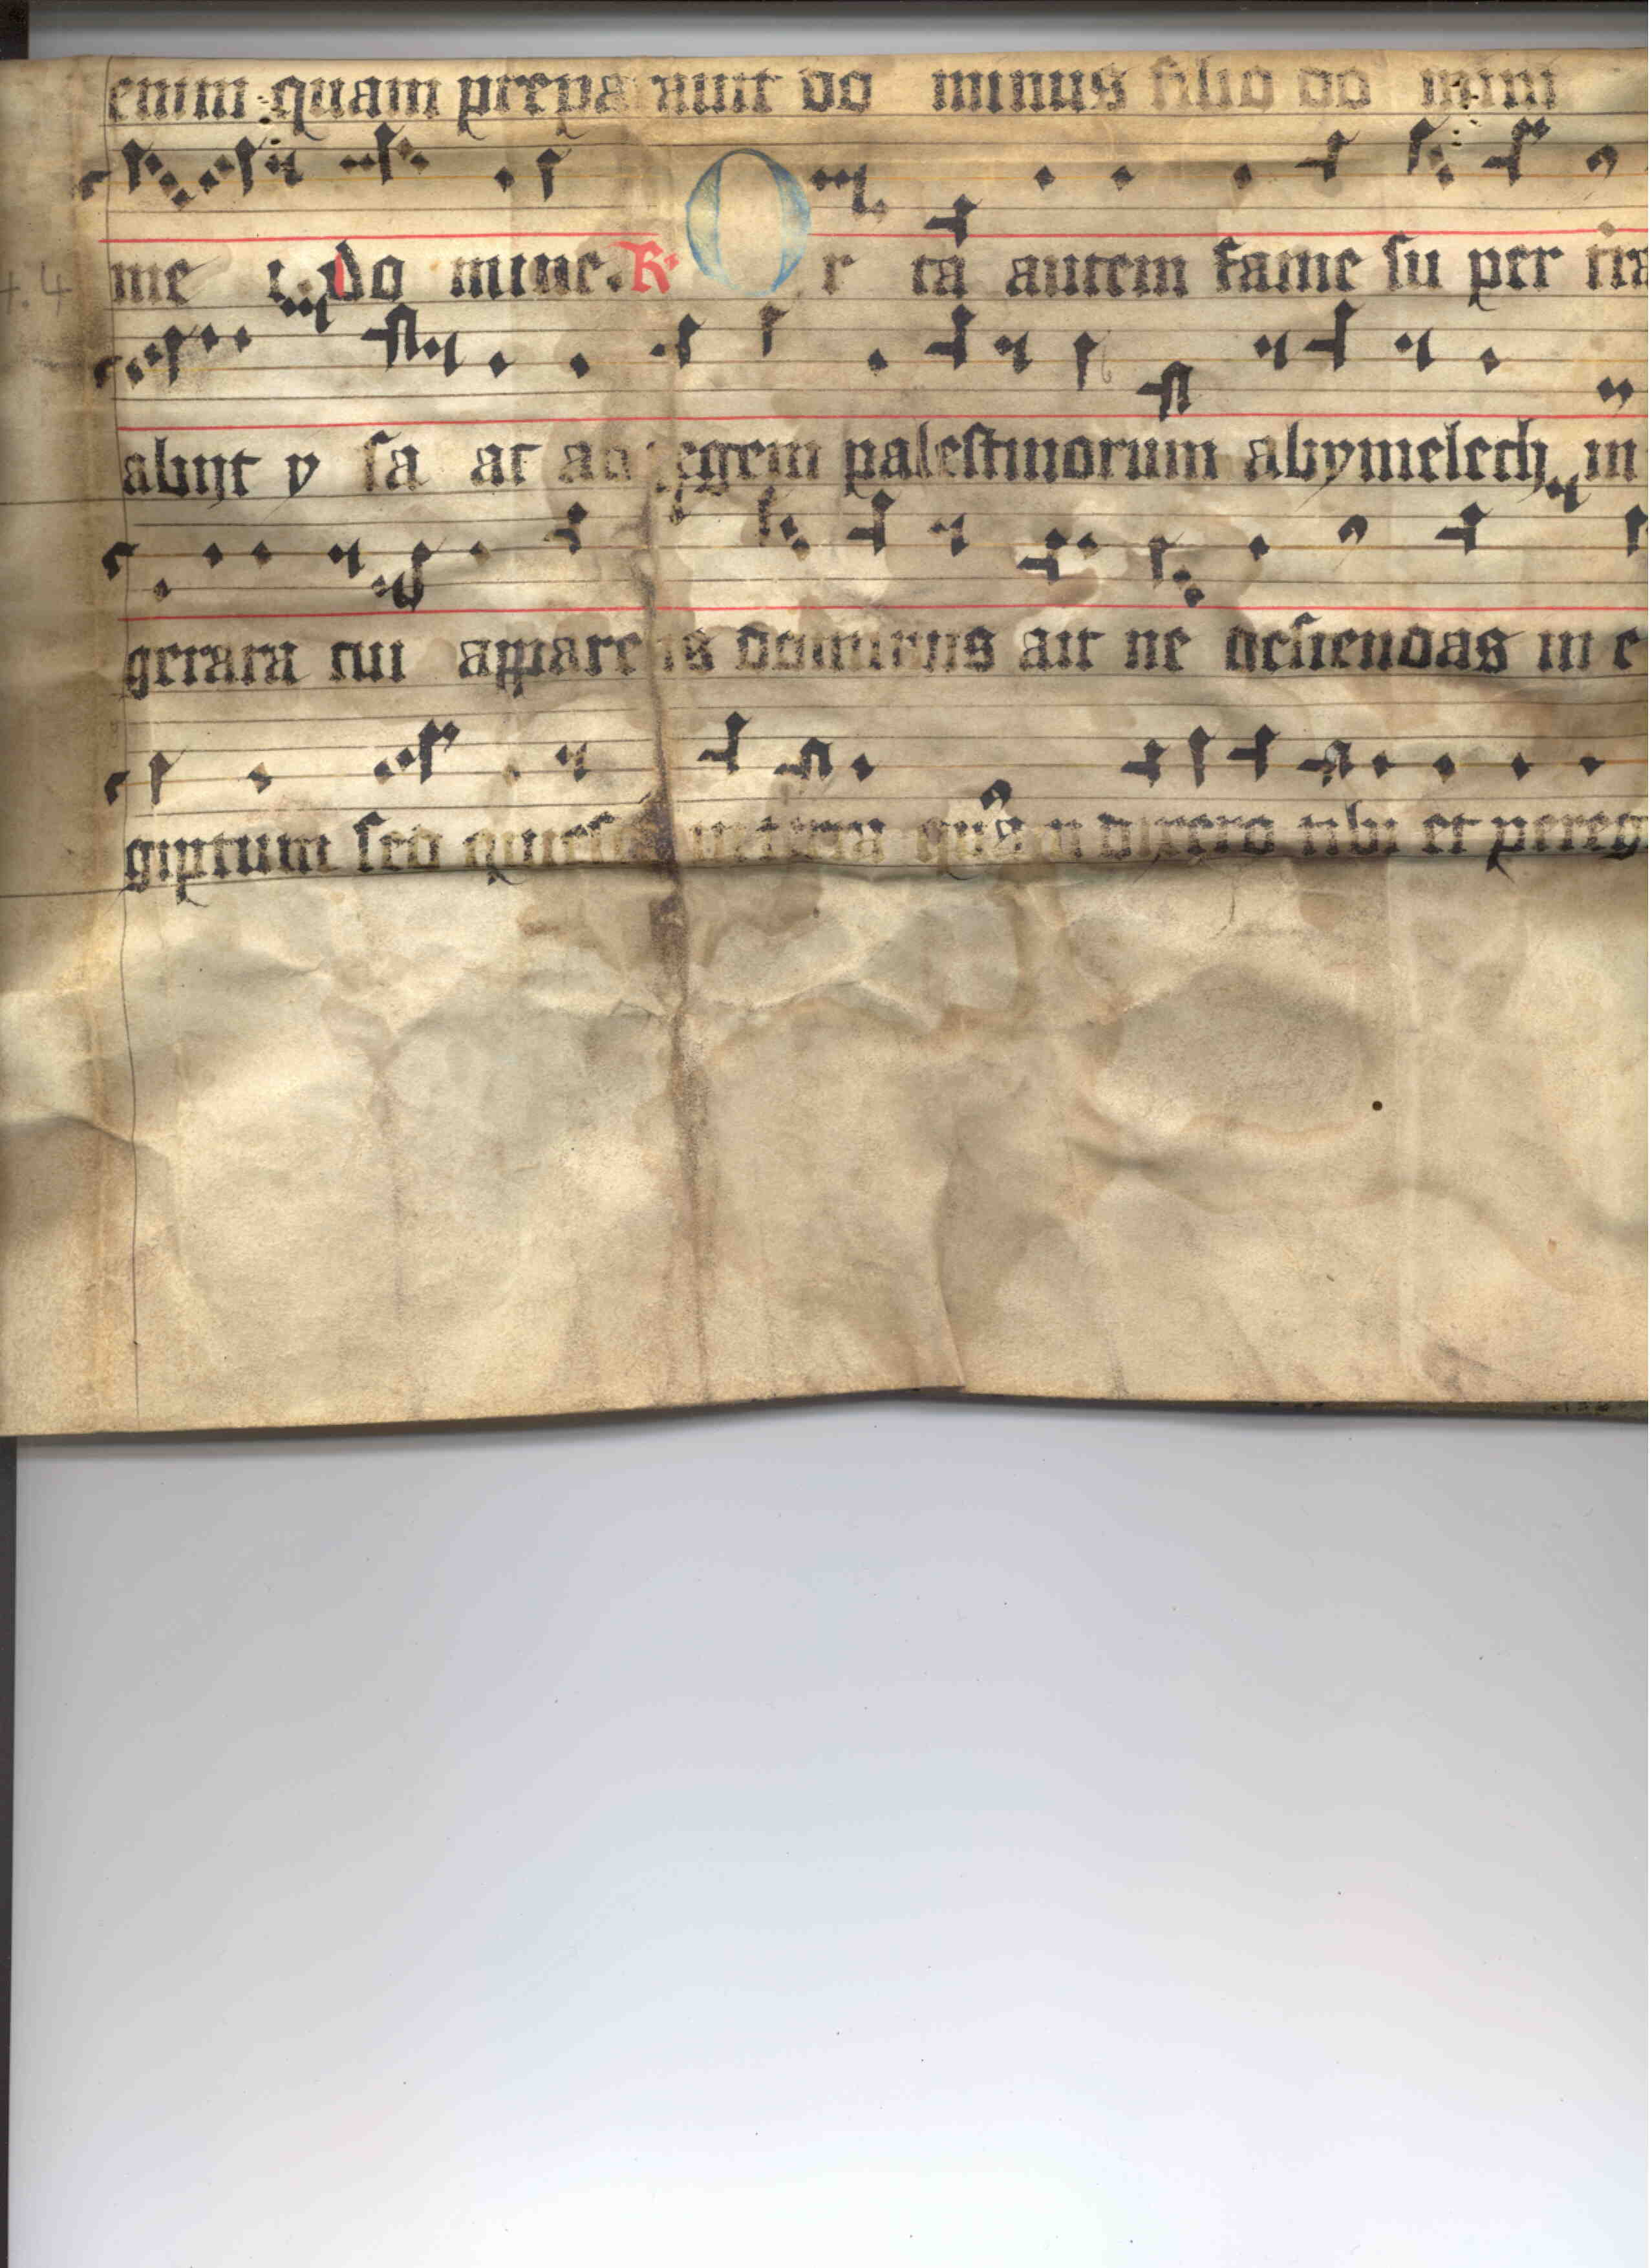 enim quam prepa auit do minus filio do mini
me i. do mine. R. O r ta autem fame su per tra
abijt y sa ac ad regem palestinorum abymelech in
gerara cui appare ns dominus ait ne descendas in e
giptum sed quiesce in terra quam dixero tibi et pereg